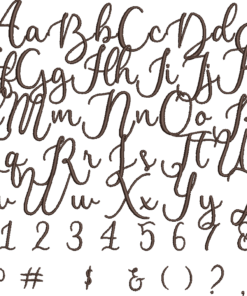 Aa Bb Cc
f Gg Hh Ii Jj
Mm Nn Oo
q Rr Ss Tt U
w Xx Yy
1 2 3 4 5 6 7 8
# $ & ( ) ?